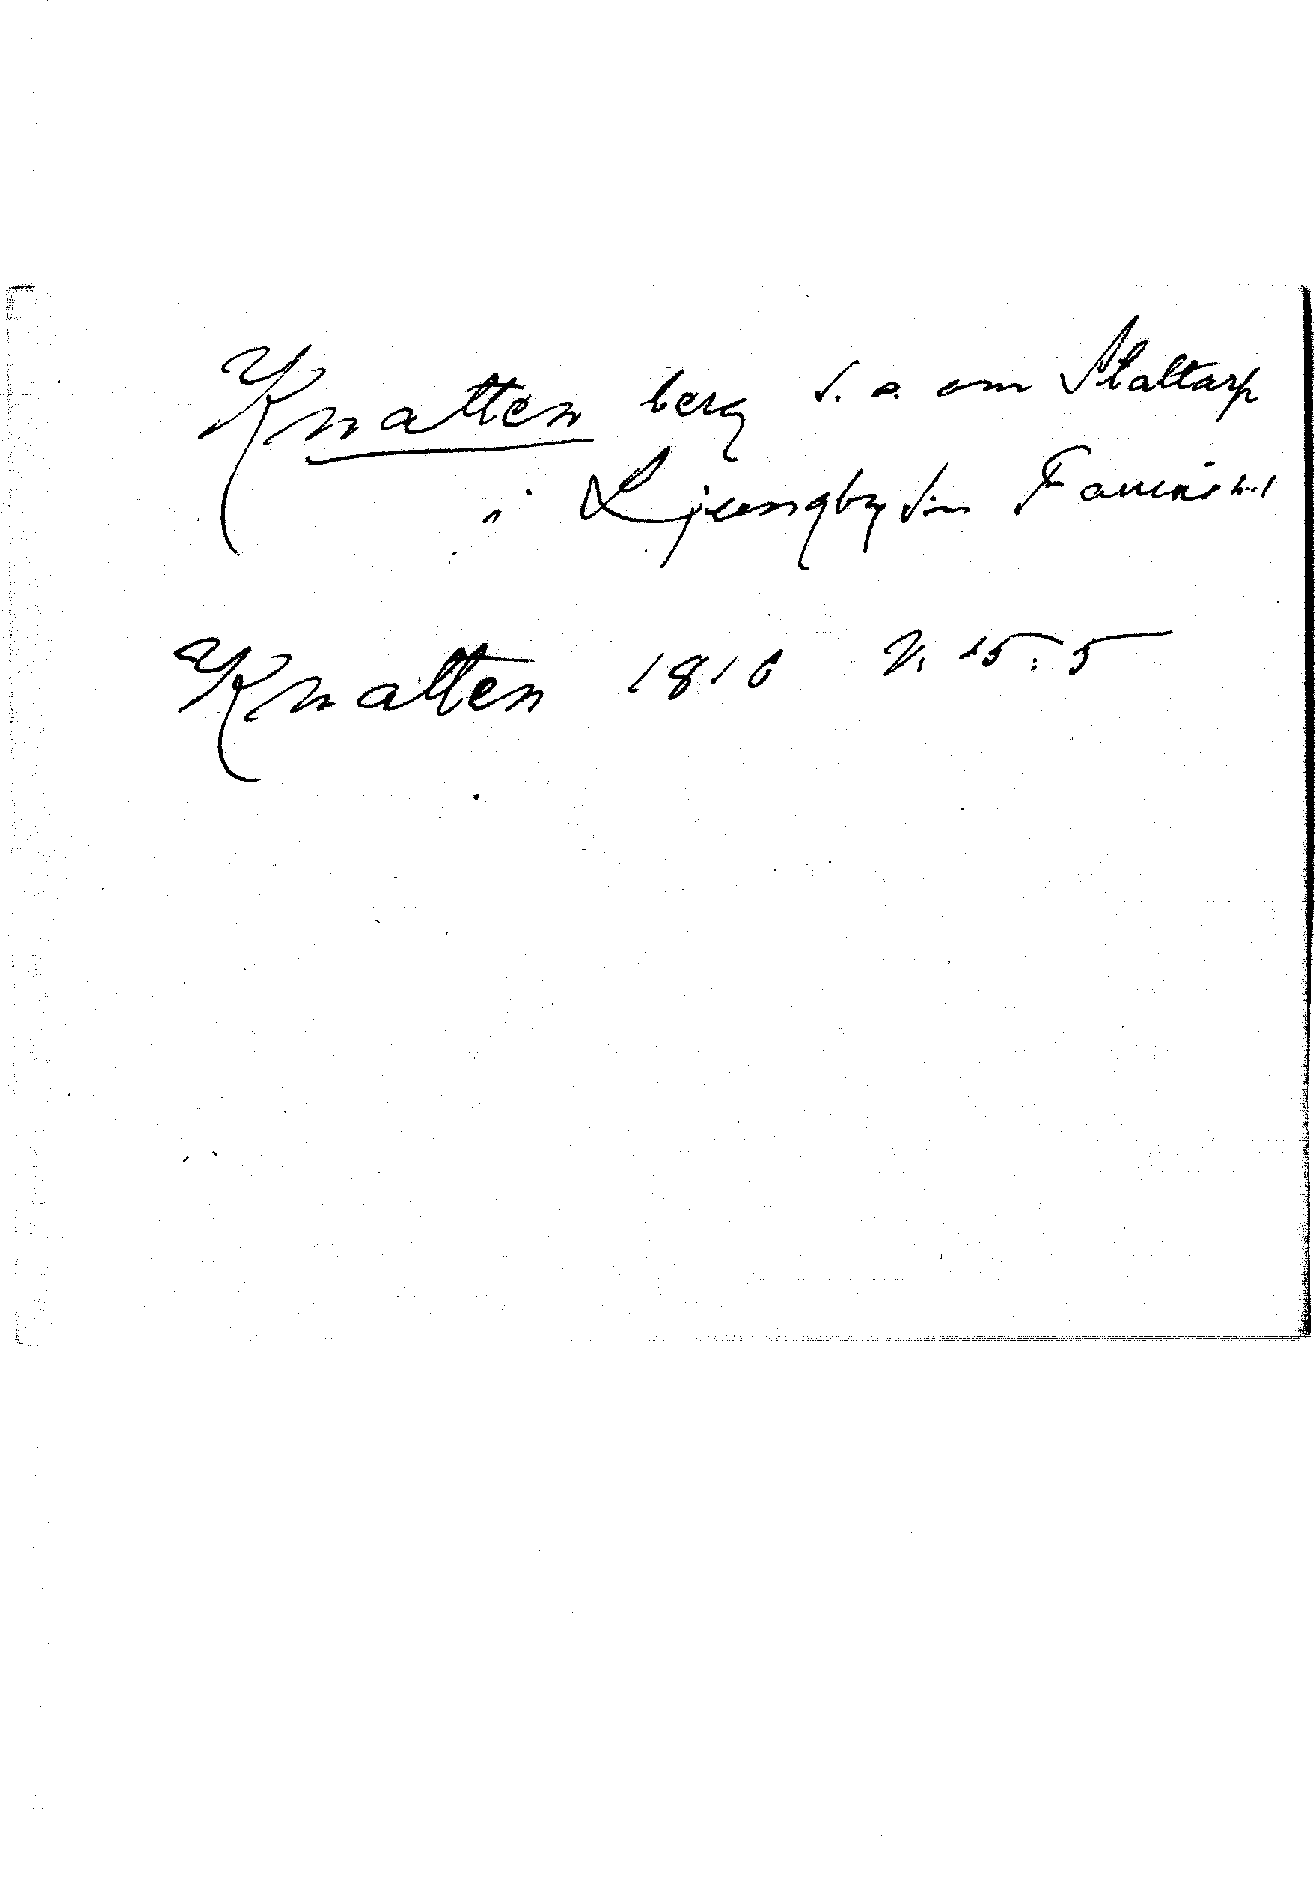 Knatten berg s. o. om Slättarp
i Ljungby sn Faurås hd
Knatten 1810 V. 15:5